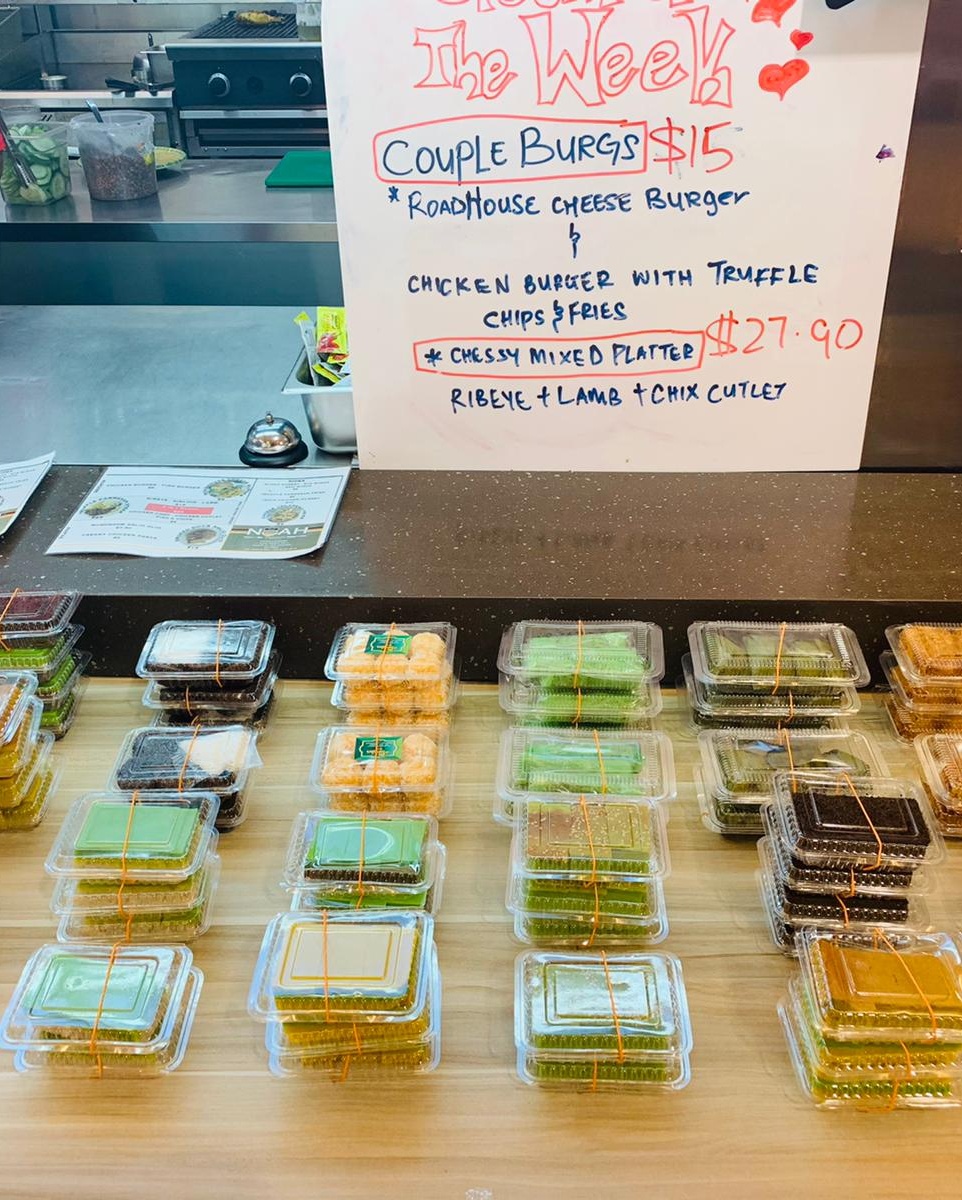 The Week
COUPLE BURGS $15
* ROADHOUSE CHEESE BURGER
&
CHICKEN BURGER WITH TRUFFLE
CHIPS & FRIES
* CHESSY MIXED PLATTER $27.90
RIBEYE + LAMB + CHIX CUTLET
NOAH